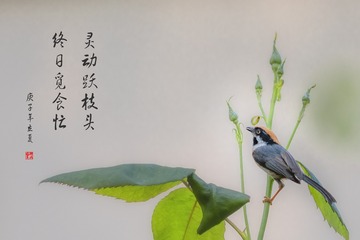 灵动跃枝头
终日觅食忙
庚子年孟夏